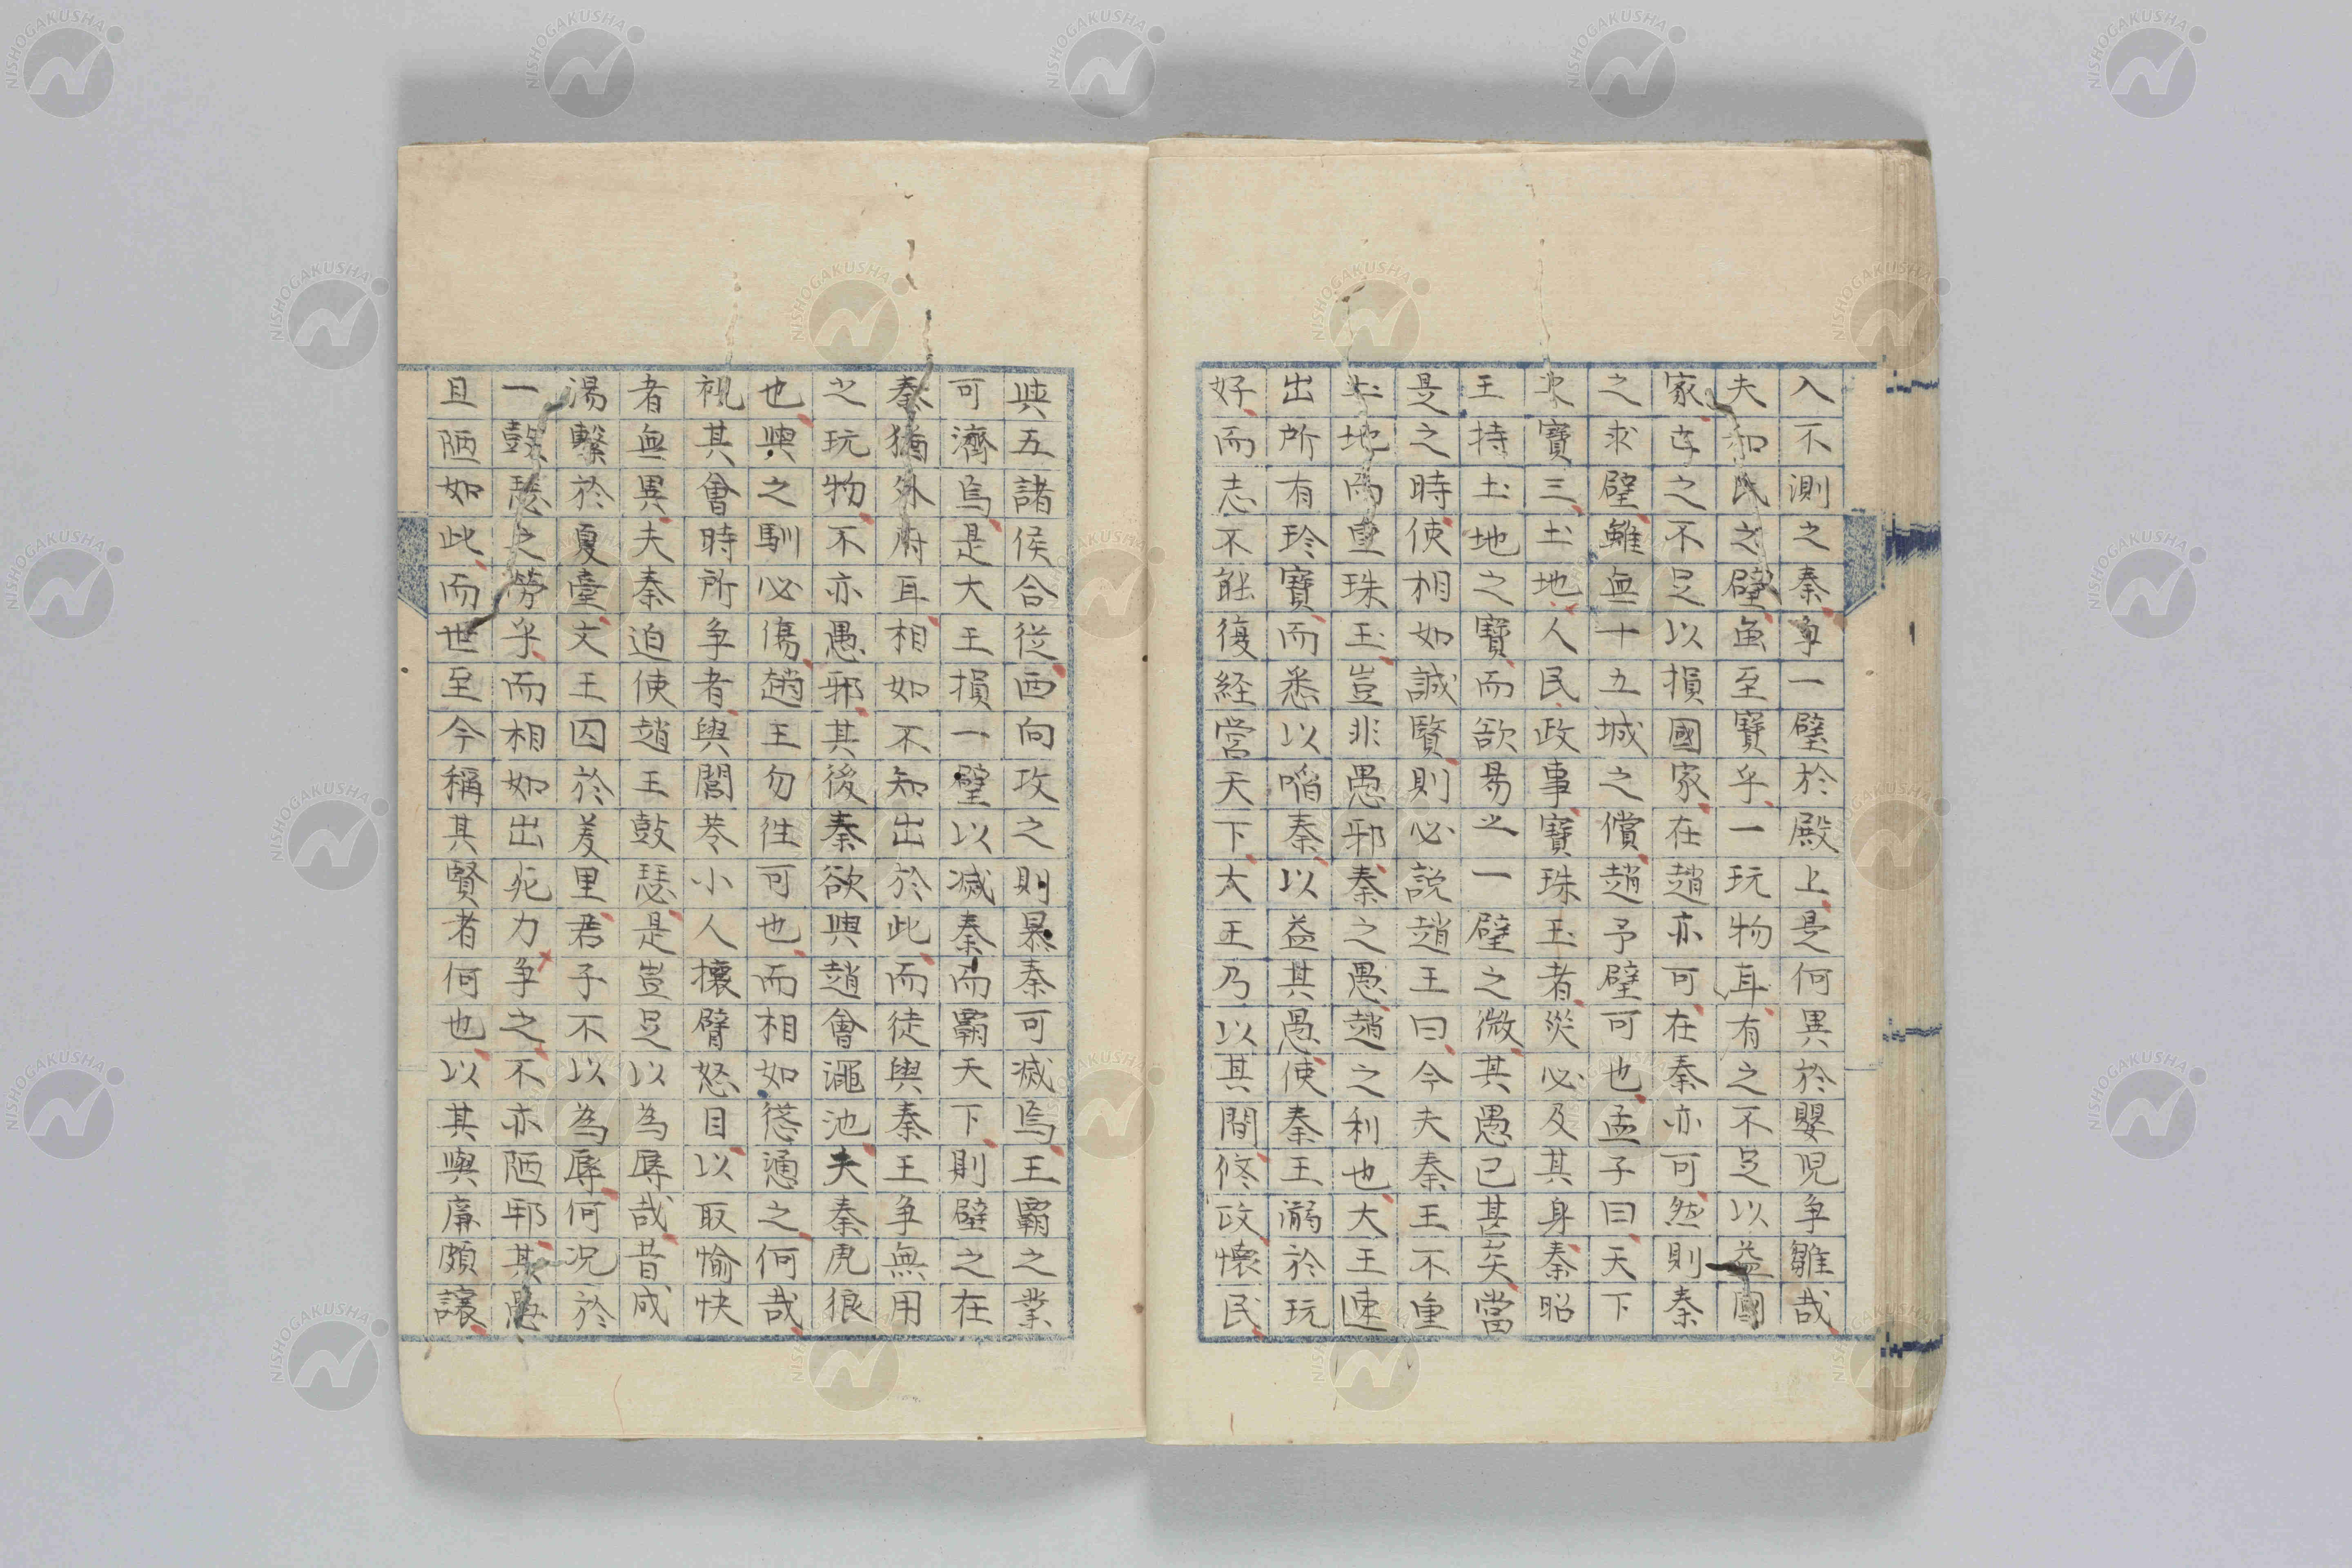 入不測之秦争一璧於殿上是何異於嬰児争雛哉
夫和氏之璧虽至寶乎一玩物耳有之不足以益國
家亡之不足以損國家在趙亦可在秦亦可然則秦
之求璧雖無十五城之償趙予璧可也孟子曰天下
之寶三土地人民政事寶珠玉者災必及其身秦昭
王持土地之寶而欲易之一璧之微其愚已甚矣當
是之時使相如誠賢則必説趙王曰今夫秦王不重
土地而重珠玉豈非愚邪秦之愚趙之利也大王速
出所有珍寶而悉以啗秦以益其愚使秦王溺於玩
好而志不能復経営天下大王乃以其間修政懐民
與五諸侯合従西向攻之則暴秦可滅焉王霸之業
可濟焉是大王損一璧以滅秦而霸天下則璧之在
秦猶外府耳相如不知出於此而徒與秦王争無用
之玩物不亦愚邪其後秦欲與趙會澠池夫秦虎狼
也與之馴必傷趙王勿往可也而相如慫慂之何哉
視其會時所争者與閭巷小人攘臂怒目以取愉快
者無異夫秦迫使趙王鼓瑟是豈足以為辱哉昔成
湯繫於夏臺文王囚於羑里君子不以為辱何况於
一鼓瑟之勞乎而相如出死力争之不亦陋邪其愚
且陋如此而世至今稱其賢者何也以其與廉頗讓